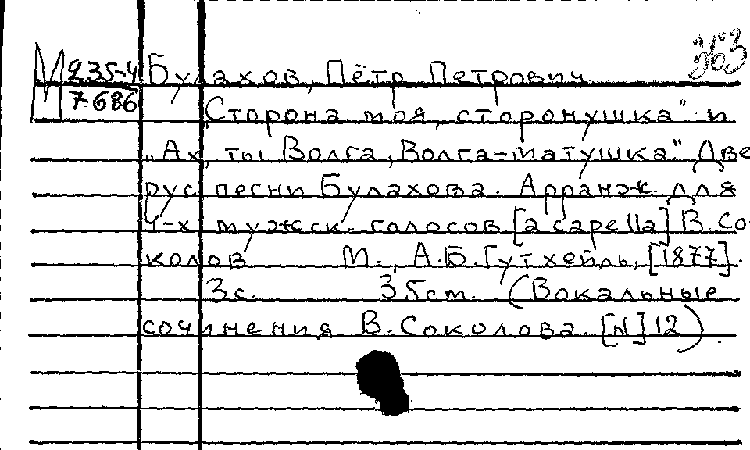 363
М 235-4 Булахов, Пётр Петрович
7686
„Сторона моя, сторонушка" и
„Ах, ты Волга, Волга-матушка". Две
рус песни Булахова. Арранж. для
4-х мужск. голосов [a capella] В. Со-
колов М., А.Б. Гутхейль, [1877].
3с. 35см. (Вокальные
сочинения В. Соколова. [N] 12).